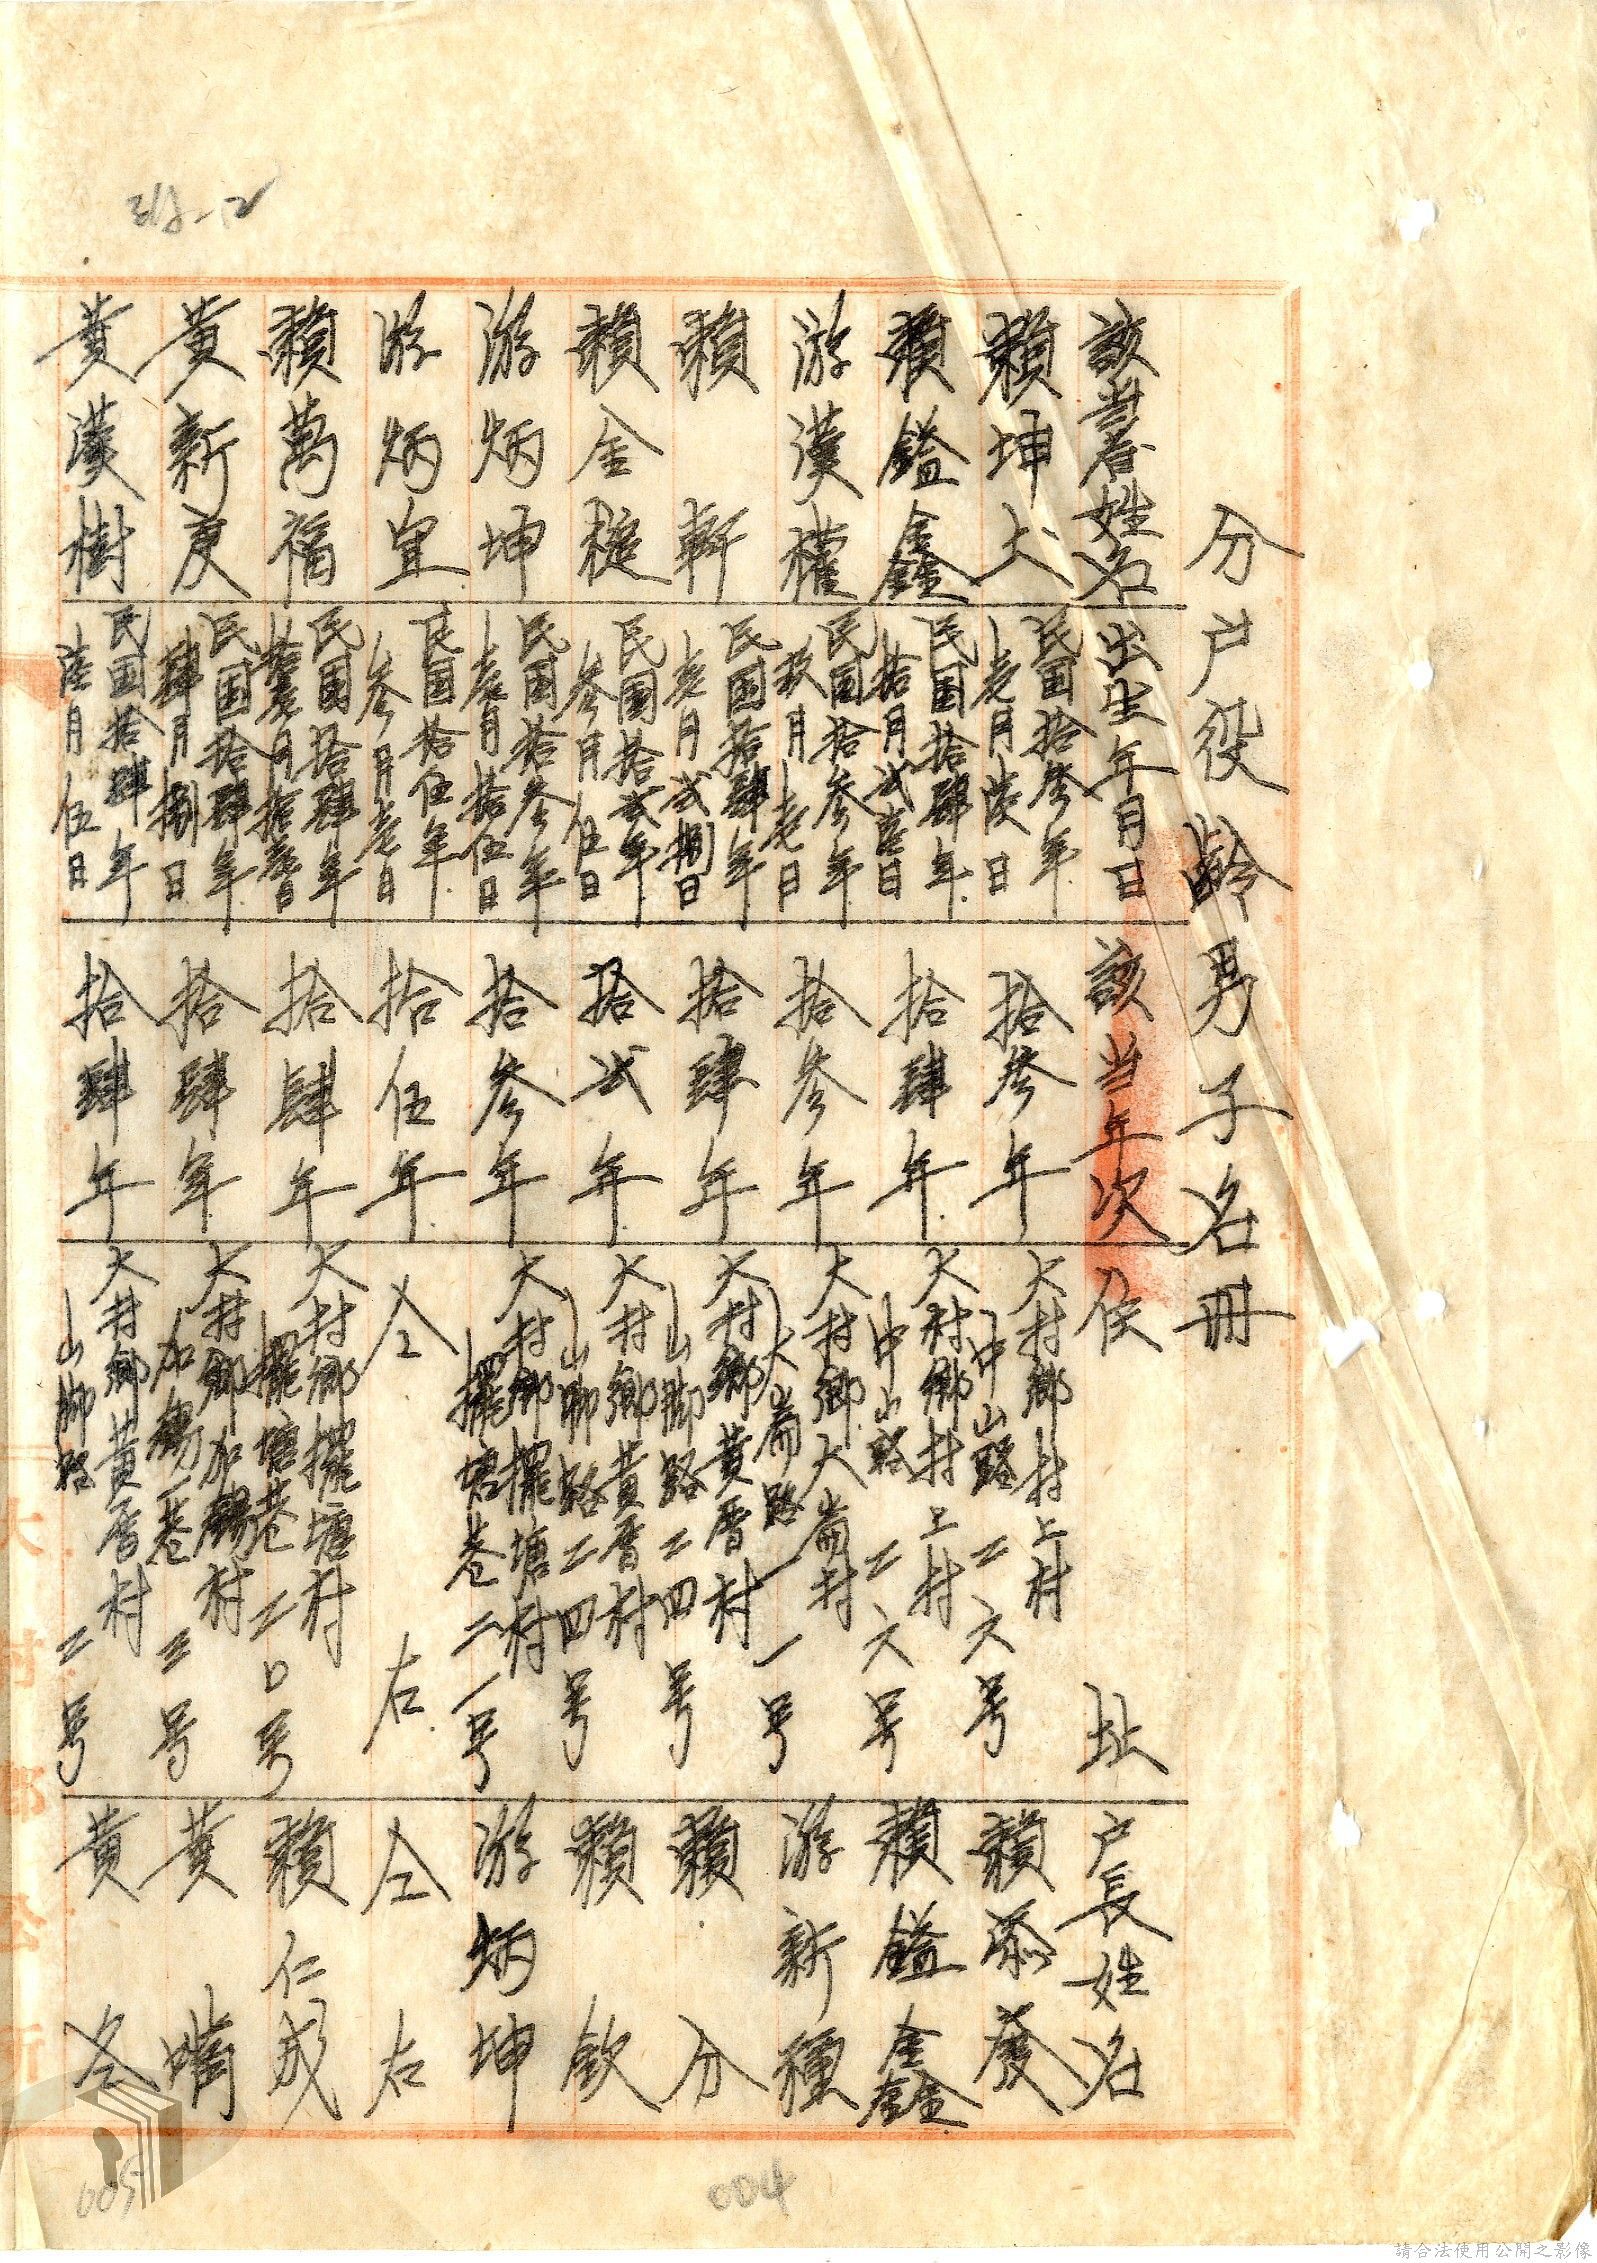 分户役齡男子名冊
該當者姓名 出生年月日 該当年次 住址 户長姓名
賴坤 民国拾參年壱月陸日 拾參年 大村鄉大村上村中山路二六号 賴添發
賴鎰鑫 民國拾肆年拾月弍壱日 拾肆年 大村鄉大村上村中山路二六号 賴鎰鑫
游漢權 民國拾參年玖月壱日 拾參年 大村鄉大崙村大崙路一一号 游新種
賴軒 民国拾肆年壱月弍捌日 拾肆年 大村鄉黄厝村山脚路二四号 賴分
賴金槌 民國拾弍年參月伍日 拾弍年 大村鄉黄厝村山脚路二四号 賴欽
游炳坤 民國拾參年壱月拾伍日 拾參年 大村鄉擺塘村擺塘巷二一号 游炳坤
游炳宜 民国拾伍年參月壱日 拾伍年 仝右 仝右
賴萬福 民國拾肆年拾壱月拾壱日 拾肆年 大村鄉擺塘村擺塘巷二0号 賴仁成
黄新庚 民国拾肆年肆月捌日 拾肆年 大村鄉加錫村加錫一巷三号 黄
黄漢樹 民国拾肆年陸月伍日 拾肆年 大村鄉黄厝村山脚路二号 黄
004
005
請合法使用公開之影像